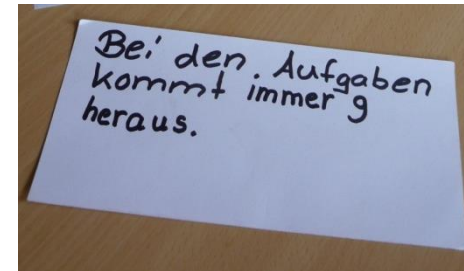 Bei den Aufgaben
kommt immer 9
heraus.